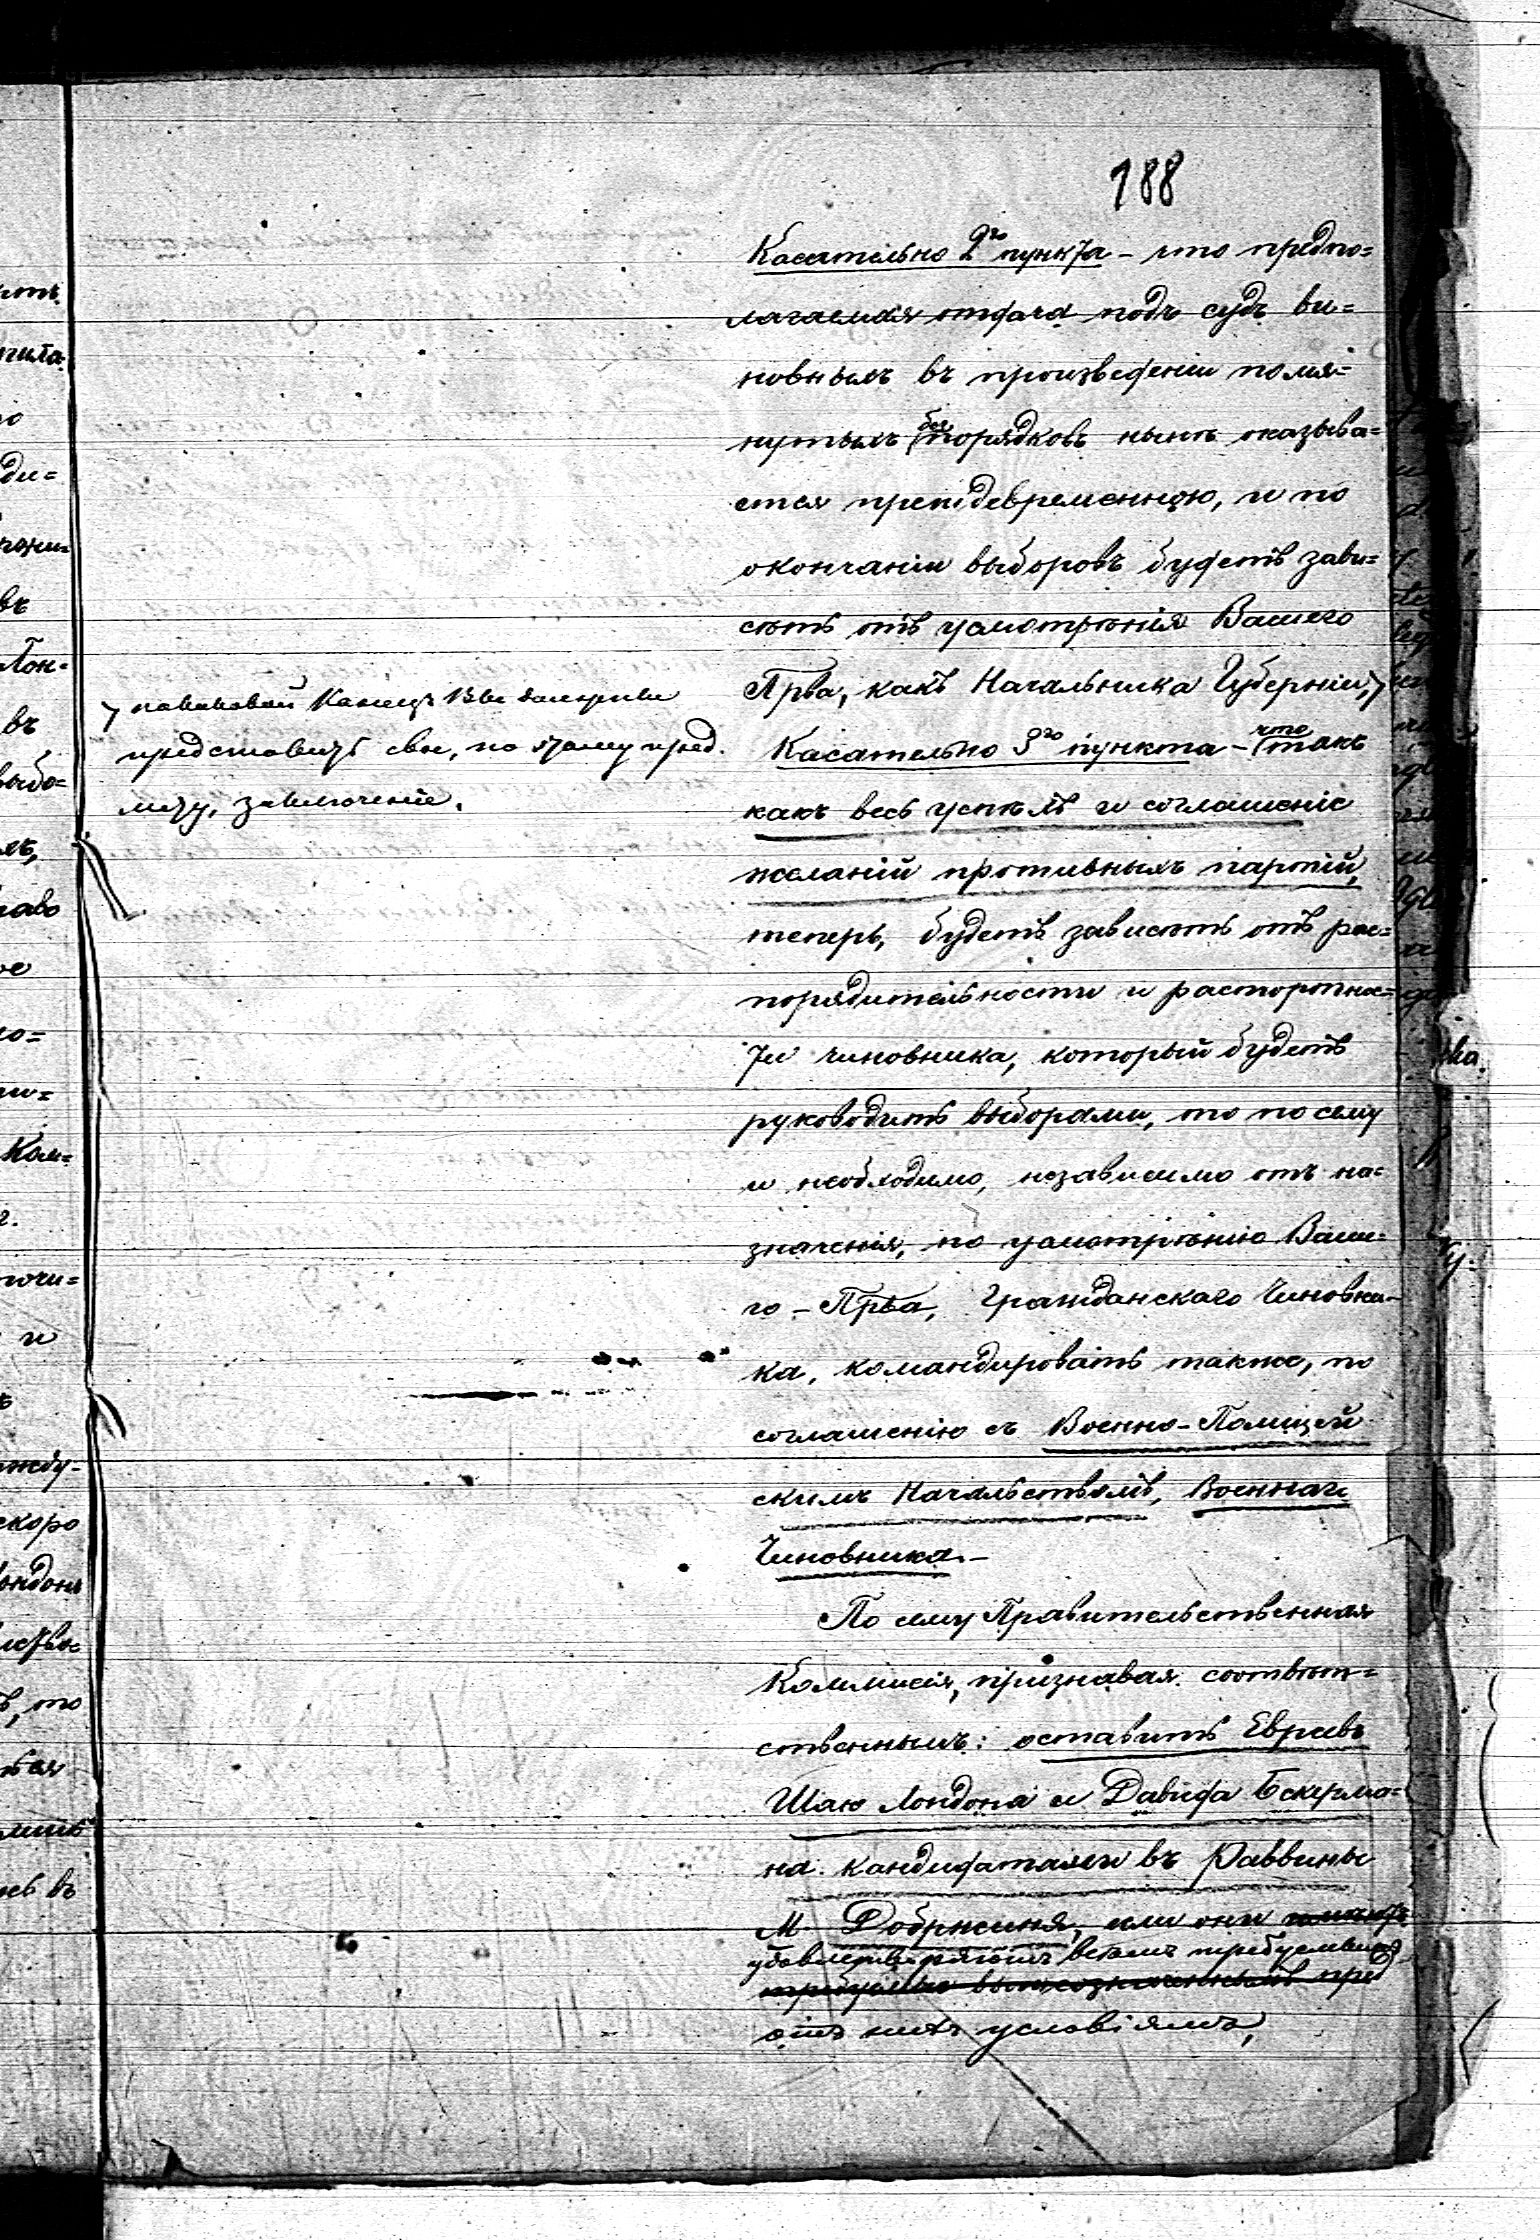 188
Касательно 2го пункта - что предпо=
лагаемая отдача подъ судъ ви=
новныхъ въ произведеніи помя=
нутыхъ безпорядковъ нынѣ оказыва=
ется преждевременною, и по
окончаніи выборовъ будетъ зави=
сѣть отъ усмотрѣнія Вашего
Прва, какъ Начальника Губерніи,
представить свое, по этому пред.
мету, заключеніе.
Касательно 3го пункта - что такъ
какъ весь успѣхъ и соглашеніе
желаній противныхъ партій,
теперь, будетъ зависѣть отъ рас=
порядительности и расторопно=
сти чиновника, который будетъ
руководить выборами, то по сему
и необходимо, независимо отъ на=
значенія, по усмотрѣнію Ваше=
го Прва, Гражданскаго Чиновни=
ка, командировать также, по
соглашенію съ Военно-Полицей
скимъ Начальствомъ, Военнаго
Чиновника. -
По сему Правительственная
Коммисія, признавая соотвѣт=
ственнымъ: оставить Евреевъ
Шаю Лондона и Давида Бекерма=
на кандидатами въ Раввины
М. Добржиня, если они
удовлетворяютъ всѣмъ требуемымъ
отъ нихъ условіямъ,